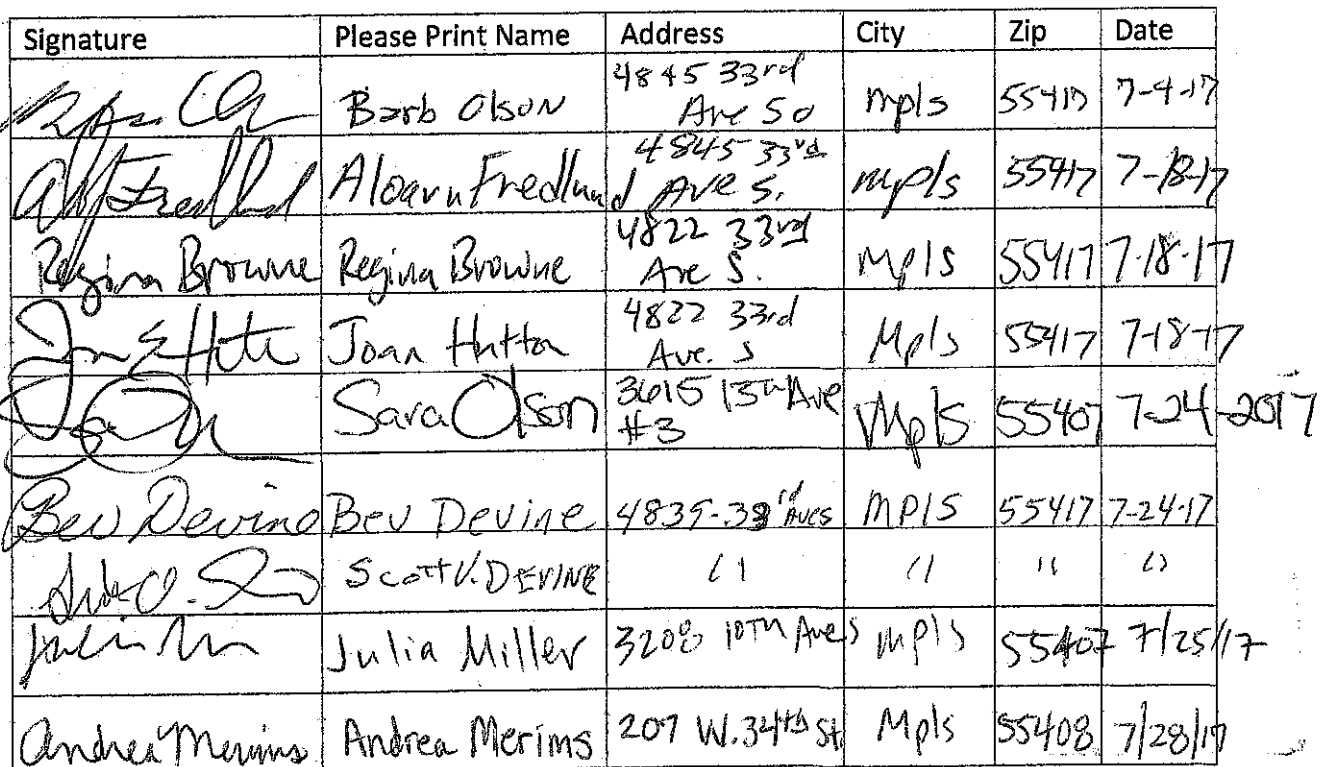 Signature Please Print Name Address City Zip Date
Barb Olson 4845 33rd Ave So mpls 55417 7-4-17
Fredlund 4845 33rd Ave S. mpls 55417 7-18-17
Regina Browne Regina Browne 4822 33rd Ave S. Mpls 55417 7-18-17
Joan Hutton 4822 33rd Ave. S Mpls 55417 7-18-17
Sara Olson 3615 13th Ave #3 Mpls 55407 7-24-2017
Bev Devine Bev Devine Aves MPLS 55417 7-24-17
Scott V. DEVINE " " " "
Julia Miller 3208 10TH Ave S mpls 55407 7/25/17
Andrea Merims Andrea Merims 207 W. 34th St Mpls 55408 7/28/17